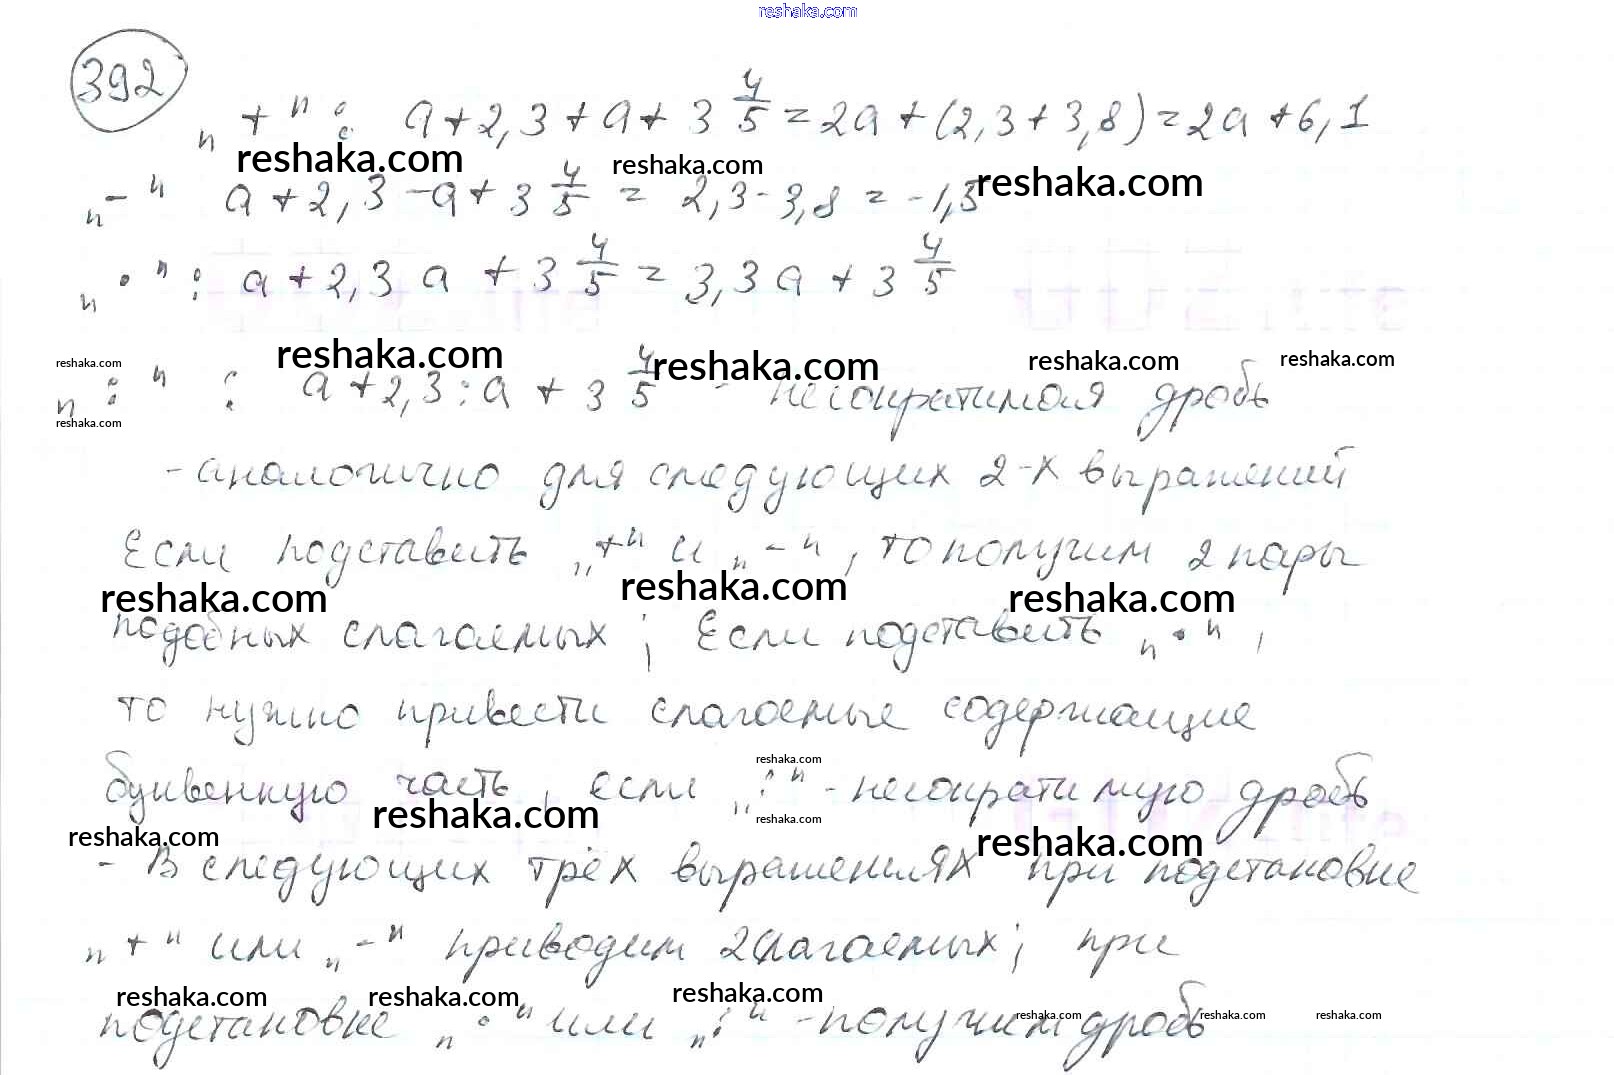 reshaka.com
392
"+": a + 2,3 + a + 3 4/5 = 2a + (2,3 + 3,8) = 2a + 6,1
reshaka.com reshaka.com reshaka.com
"-" a + 2,3 - a + 3 4/5 = 2,3 - 3,8 = -1,5
"·": a + 2,3 a + 3 4/5 = 3,3 a + 3 4/5
reshaka.com reshaka.com reshaka.com reshaka.com reshaka.com
":" : a + 2,3 : a + 3 4/5 - несократимая дробь
reshaka.com
- аналогично для следующих 2-х выражений
Если подставить "+" и "-", то получим 2 пары
reshaka.com reshaka.com reshaka.com
подобных слагаемых; Если подставить "·",
то нужно привести слагаемые содержащие
reshaka.com
буквенную часть, если ":" - несократимую дробь
reshaka.com reshaka.com reshaka.com reshaka.com
- В следующих трёх выражениях при подстановке
"+" или "-" приводим 2 слагаемых; при
reshaka.com reshaka.com reshaka.com
подстановке "·" или ":" - получим дробь
reshaka.com reshaka.com reshaka.com